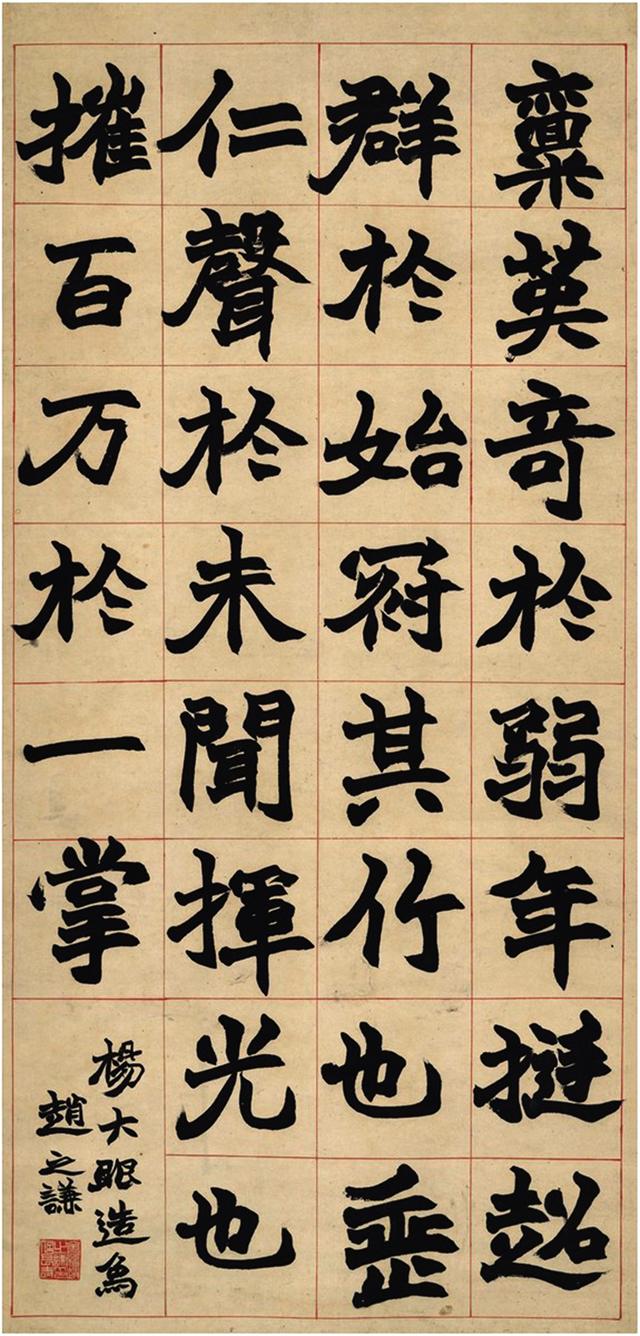 稟英奇於弱年挺超
群於始冠其行也垂
仁聲於未聞揮光也
摧百万於一掌
楊大眼造為
趙之謙